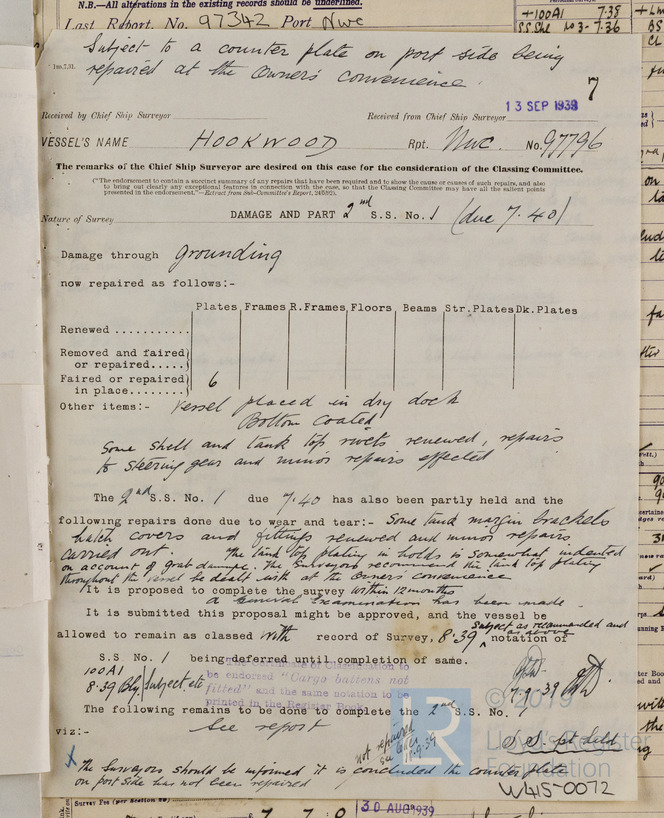 N.B.—All alterations in the existing records should be underlined.
Last Report. No. 97342 Port Nwc
+100A1 7.38
SS She No 3-7.36
Subject to a counter plate on port side being
repaired at the Owners' convenience.
7
13 SEP 1939
Received by Chief Ship Surveyor
Received from Chief Ship Surveyor
VESSEL'S NAME HOOKWOOD Rpt. Nwc. No. 97796
The remarks of the Chief Ship Surveyor are desired on this case for the consideration of the Classing Committee.
("The endorsement to contain a succinct summary of any repairs that have been required and to show the cause or causes of such repairs, and also
to bring out clearly any exceptional features in connection with the case, so that the Classing Committee may have all the salient points
presented in the endorsement."—Extract from Sub-Committee's Report, 24/5/92).
Nature of Survey DAMAGE AND PART 2nd S.S. No. 1 (due 7.40)
Damage through grounding
now repaired as follows:-
Plates Frames R.Frames Floors Beams Str.Plates Dk.Plates
Renewed ...........
Removed and faired
or repaired.....
Faired or repaired 6
in place........
Other items:- Vessel placed in dry dock
Bottom Coated
Some shell and tank top rivets renewed, repairs
to steering gear and minor repairs effected
The 2nd S.S. No. 1 due 7.40 has also been partly held and the
following repairs done due to wear and tear:- Some tank margin brackets
hatch covers and fittings renewed and minor repairs
carried out. The tank top plating in holds is somewhat indented
on account of grab damage. The Surveyors recommend the tank top plating
throughout the vessel be dealt with at the Owners' convenience
It is proposed to complete the survey within 12 months
A General Examination has been made.
It is submitted this proposal might be approved, and the vessel be
allowed to remain as classed with record of Survey, 8.39 subject as recommended and as above notation of
S.S No. 1 being deferred until completion of same.
The Certificate of Classification to
be endorsed "Cargo battens not
fitted" and the same notation to be
printed in the Register Book.
100A1
8.39 Bly subject etc
7.9.39
The following remains to be done to complete the 2nd S.S. No. 1
viz:- See report
not repaired
S.S. pt held
X The Surveyors should be informed it is concluded the counter plate
on port side has not been repaired
© 2019
Lloyd's Register
Foundation
W415-0072
30 AUG 1939